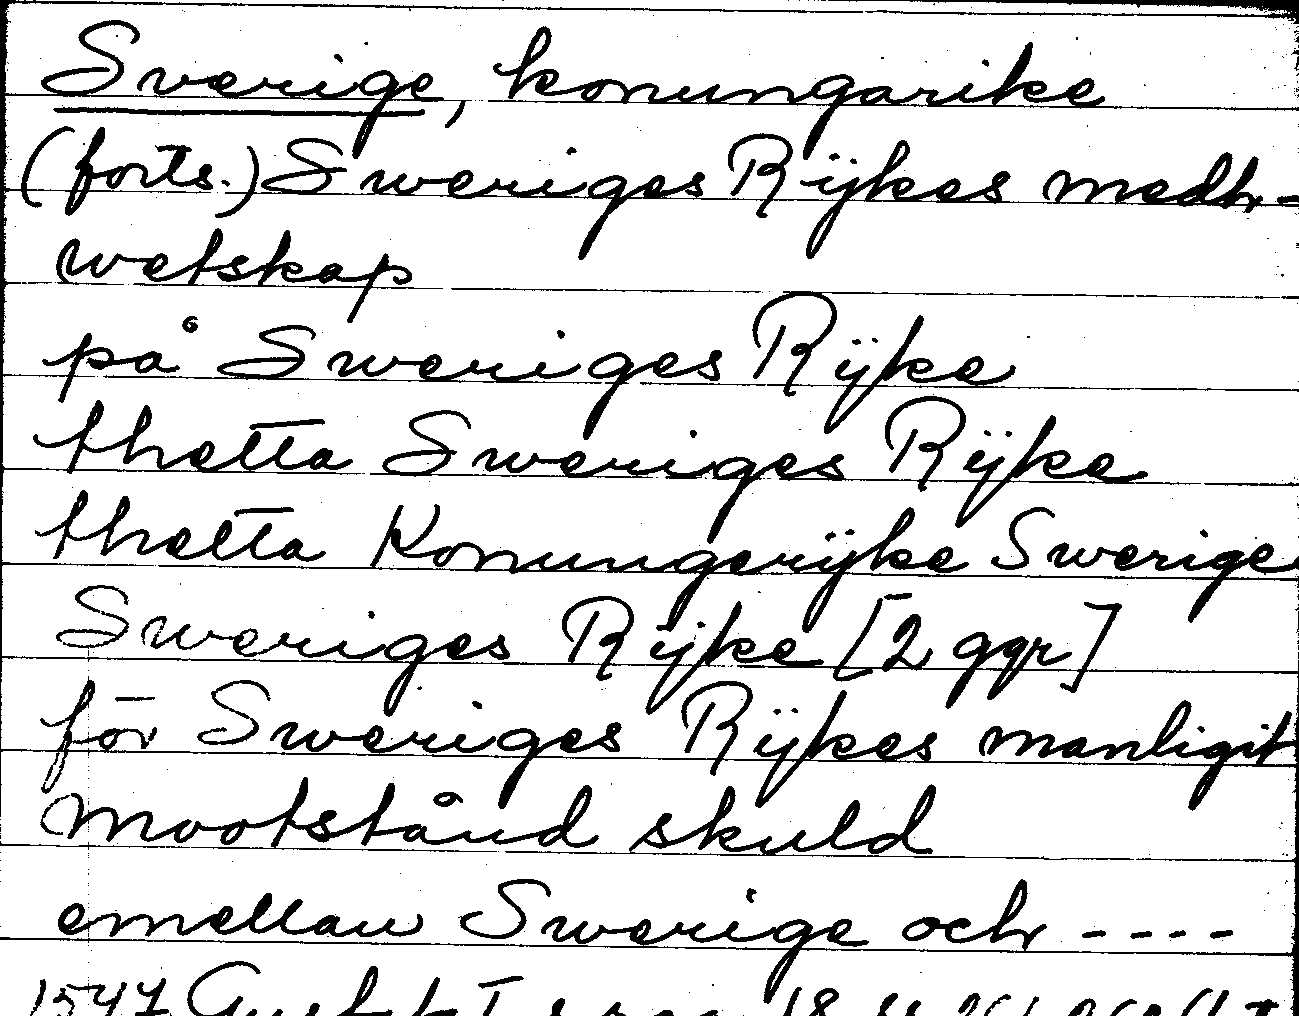 Sverige, konungarike
(forts.) Sweriges Rÿkes medh-
wetskap
på Sweriges Rÿke
thetta Sweriges Rÿke
thetta Konungerÿke Swerige
Sweriges Rÿke [2 ggr]
för Sweriges Rÿkes manligit
mootstånd skuld
emellan Swerige och ----
1547